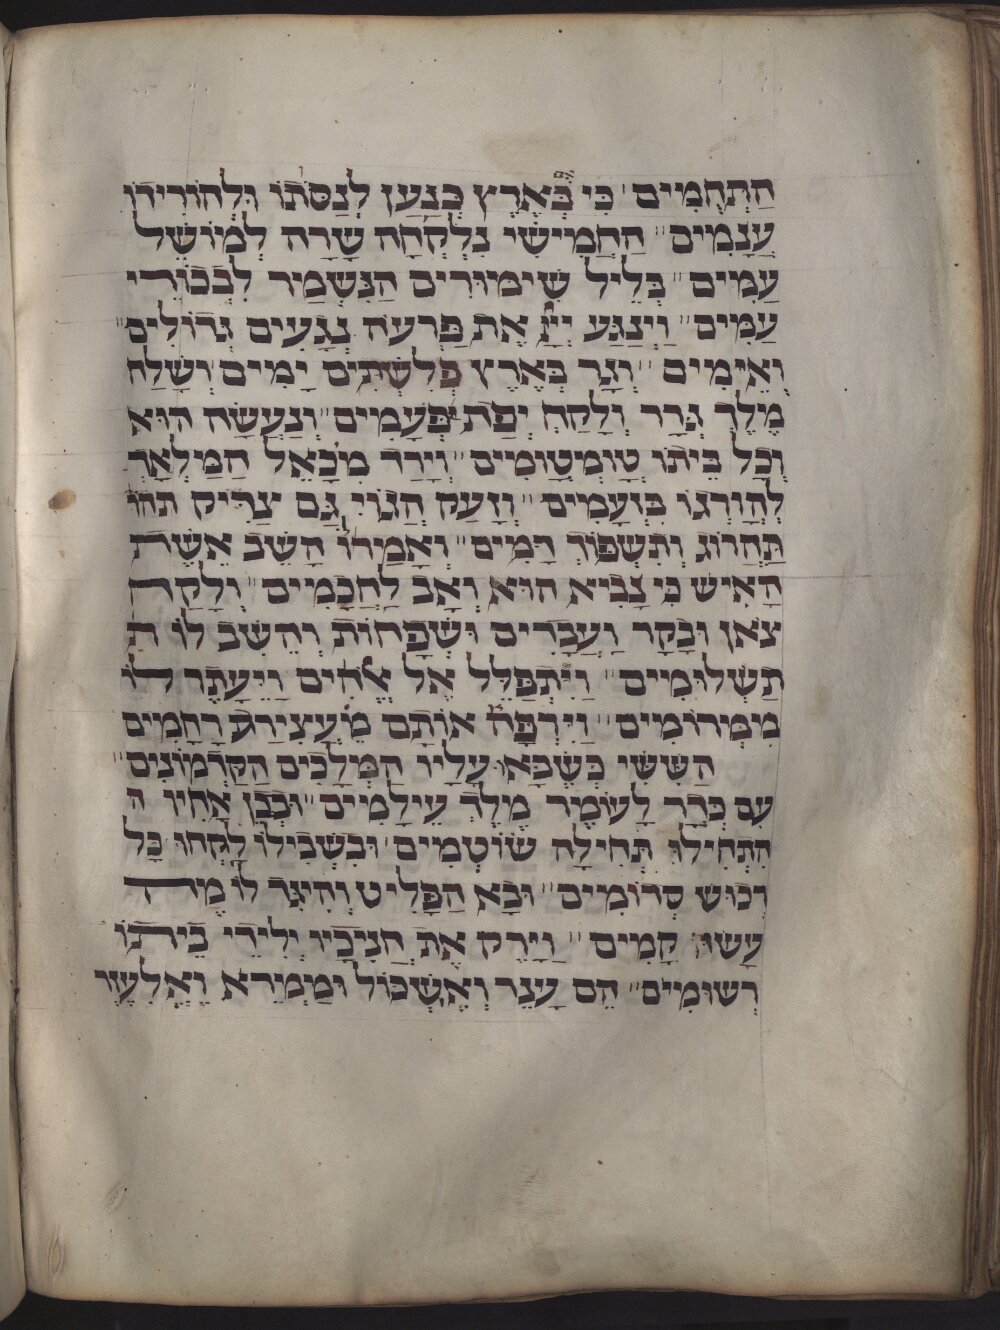 הַתְּחֻמִים׳ כִּי בְּאֶרֶץ כְּנַעַן לְנַסֹּתוֹ וּלְהוֹרִידוֹ
עֲנָמִים״ הַחֲמִישִׁי נִלְקְחָה שָׂרָה לְמוֹשֵׁל
עַמִּים״ בְּלֵיל שִׁימּוּרִים הַנִּשְׁמָר לִבְכוֹרֵי
עַמִּים״ וַיְנַגַּע יְיָ אֶת פַּרְעֹה נְגָעִים גְּדוֹלִים״
וְאֵימִים״ וְגָר בְּאֶרֶץ פְּלִשְׁתִּים יָמִים׳ וְשָׁלַח
מֶלֶךְ גְּרָר וְלָקַח יְפַת פְּעָמִים״ וְנַעֲשָׂה הוּא
וְכָל בֵּיתוֹ טֻומְטֻומִים״ וְיָרַד מִכָאֵל הַמַּלְאָךְ
לְהָרְגוֹ בִּזְעָמִים״ וְזָעַק הֲגוֹי גַּם צַדִּיק תהו
תַּהֲרוֹג וְתִשְׁפּוֹךְ דָּמִים״ וְאָמְרוּ הָשֵׁב אֵשֶׁת
הָאִישׁ כִּי נָבִיא הוּא וְאָב לַחֲכָמִים״ וְלָקַח
צֹאן וּבָקָר וַעֲבָדִים וּשְׁפָחוֹת וְהֵשִׁב לוֹ ת
תַשְׁלוּמִים״ וַיִּתְפַּלֵּל אֶל אֱלֹהִים וַיֵּעָתֶר לוֹ
מִמְּרוֹמִים״ וַיִּרְפָּה אוֹתָם מֵעֲצִירַת רְחָמִים
הַשִּׁשִּׁי כְּשֶׁבָּאוּ עָלָיו הַמְּלָכִים הַקַּדְמוֹנִים״
עִם כְּדָר לָעוֹמֶר מֶלֶךְ עֵילָמִים״ וּבְבֶן אָחִיו ה
הִתְחִילוּ תְּחִילָה שׂוֹטְמִים׳ וּבִשְׁבִילוֹ לָקְחוּ כָּל
רְכוּשׁ סְדוֹמִים״ וּבָא הַפָּלִיט וְהִיגִּד לוֹ מֶה
עָשׂוּ קָמִים״ וַיָּרֶק אֶת חֲנִיכָיו יְלִידֵי בֵיתוֹ
רְשׁוּמִים״ הֵם עָנֵר וְאֶשְׁכּוֹל וּמַמְרֵא וֶאֱלִעֶזֶר